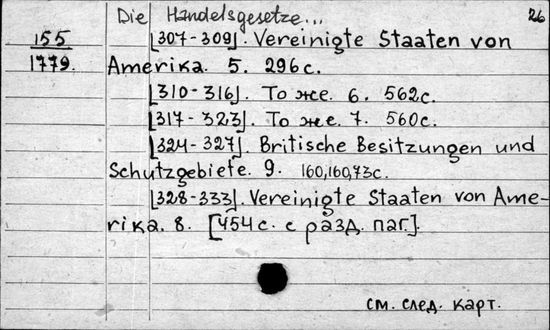 Die Handelsgesetze... 26
155 [307-309]. Vereinigte Staaten von
1779. Amerika. 5. 296с.
[310-316]. То же. 6. 562с.
[317-323]. То же. 7. 560с.
[324-327]. Britische Besitzungen und
Schutzgebiete. 9. 160,160,73с.
[328-333]. Vereinigte Staaten von Ame-
rika. 8. [454с. с разд. паг.].
см. след. карт.